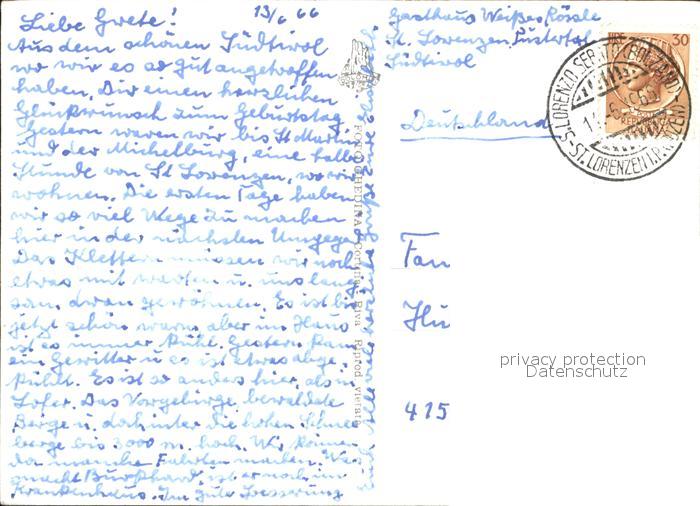 13/6 66
Liebe Grete!
Aus dem schönen Südtirol
wo wir es so gut angetroffen
haben, Dir einen herzlichen
Glückwunsch zum Geburtstag
Gestern waren wir bis St Martin
und der Michelburg, eine halbe
Stunde von St Lorenzen, wo wir
wohnen. Die ersten Tage haben
wir so viel Wege zu machen
hier in der nächsten Umgege
Das Klettern müssen wir noch
etwas mit warten u. uns lang
sam dran gewöhnen. Es ist bis
jetzt schön warm aber im Haus
ist es immer kühl. Gestern kam
ein Gewitter u es ist etwas abge
kühlt. Es ist so anders hier als in
Lofer. Das Vorgebirge bewaldete
Berge u. dahinter die hohen Schnee
berge bis 3000 m. hoch. Wir können
da manche Fahrten machen. Was
macht Burkhard, ist er noch im
Krankenhaus. Im gute Besserung
Euch Alle viele herzliche Grüße Eure
FOTOCHEDINA
Riva Reprod. vietata
Gasthaus Weißes Rössle
St. Lorenzen Pustertal
Südtirol
Deutschland
30
S. LORENZO SEB.TO (BOLZANO)
ST. LORENZEN I. P. (BOZEN)
Fam
Hu
415
privacy protection
Datenschutz